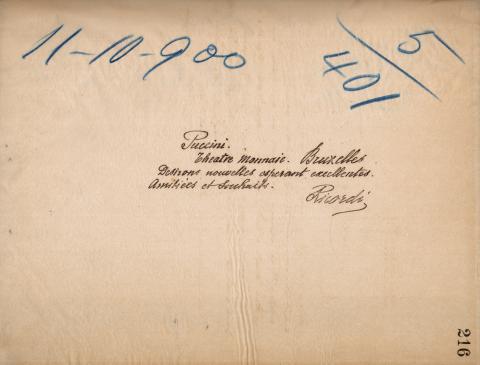 11-10-900
5/401
Puccini.
Théatre Monnaie. Bruxelles
Désirons nouvelles espérant excellentes.
Amitiées et souhaits.
Ricordi
216